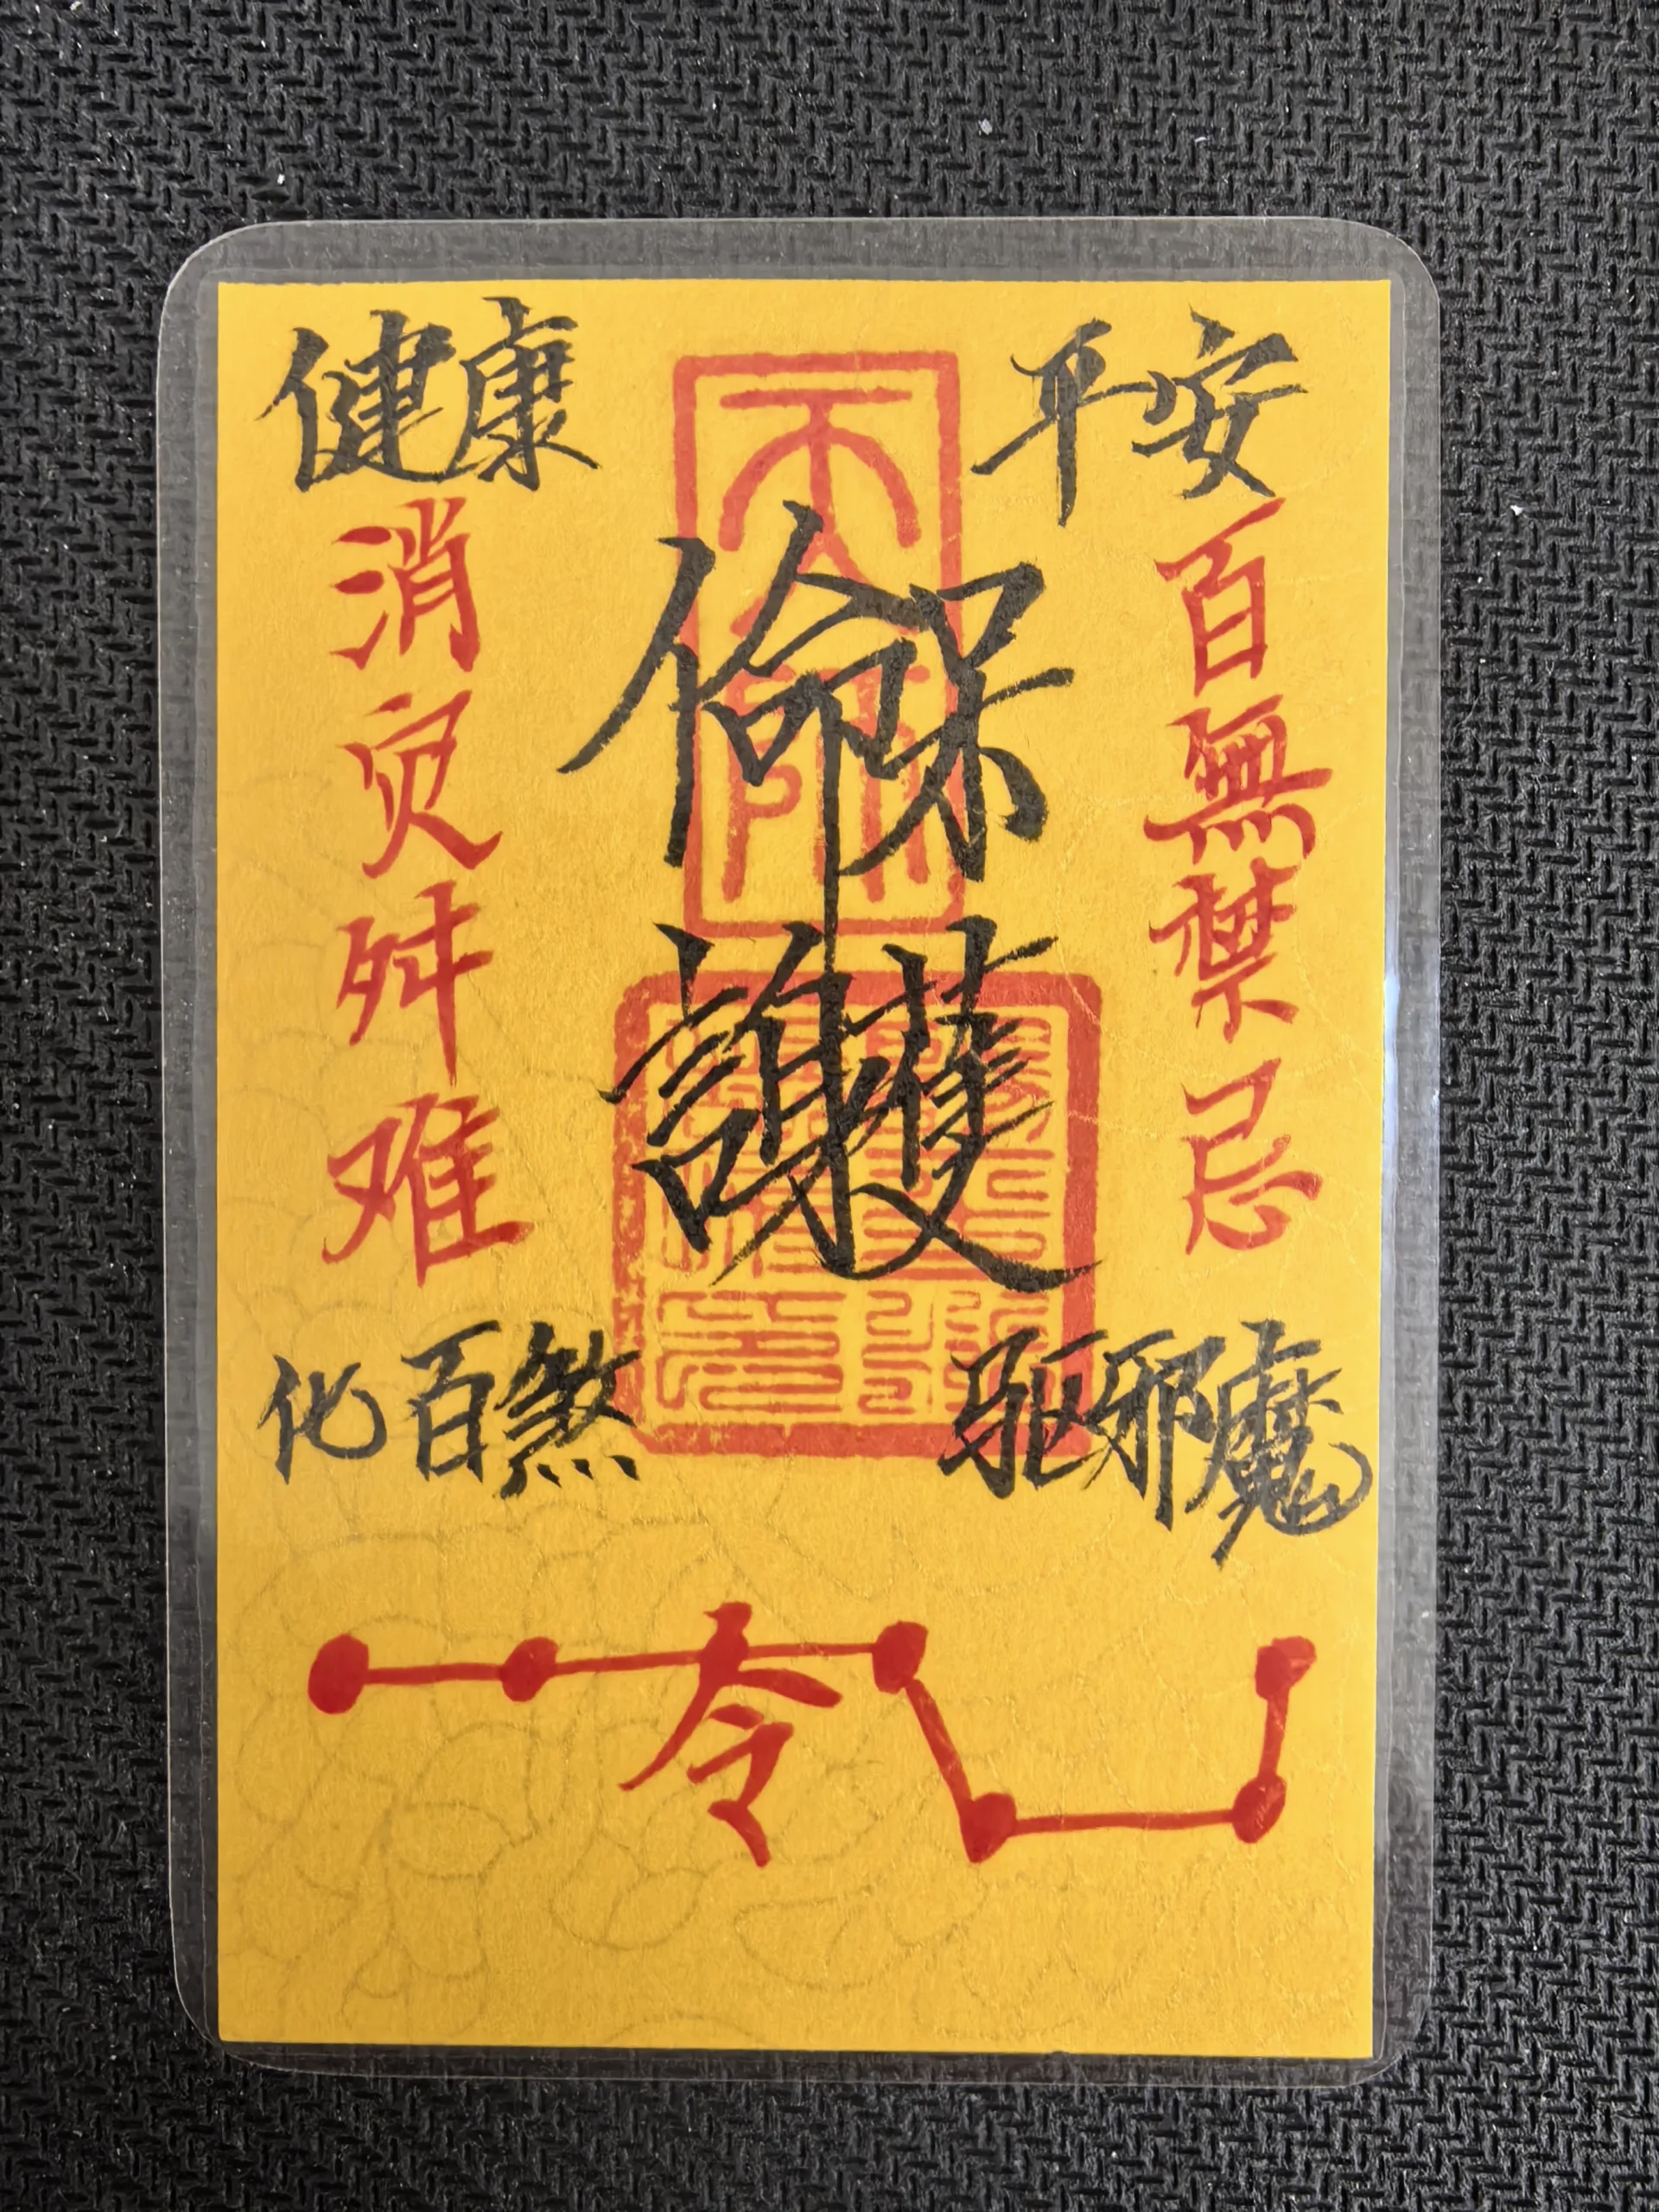 健康
平安
百無禁忌
消灾舛难
保命
護身
驱邪魔
化百煞
令